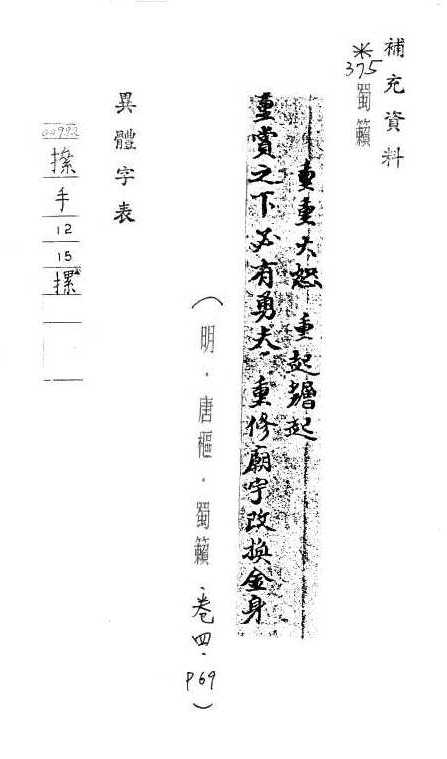 補充資料
*375 蜀籟
重重大怒 重起爐起
重賞之下必有勇夫 重修廟宇改換金身
(明.唐樞.蜀籟.卷四.P69)
異體字表
00992
㩡
手
12
15
摞